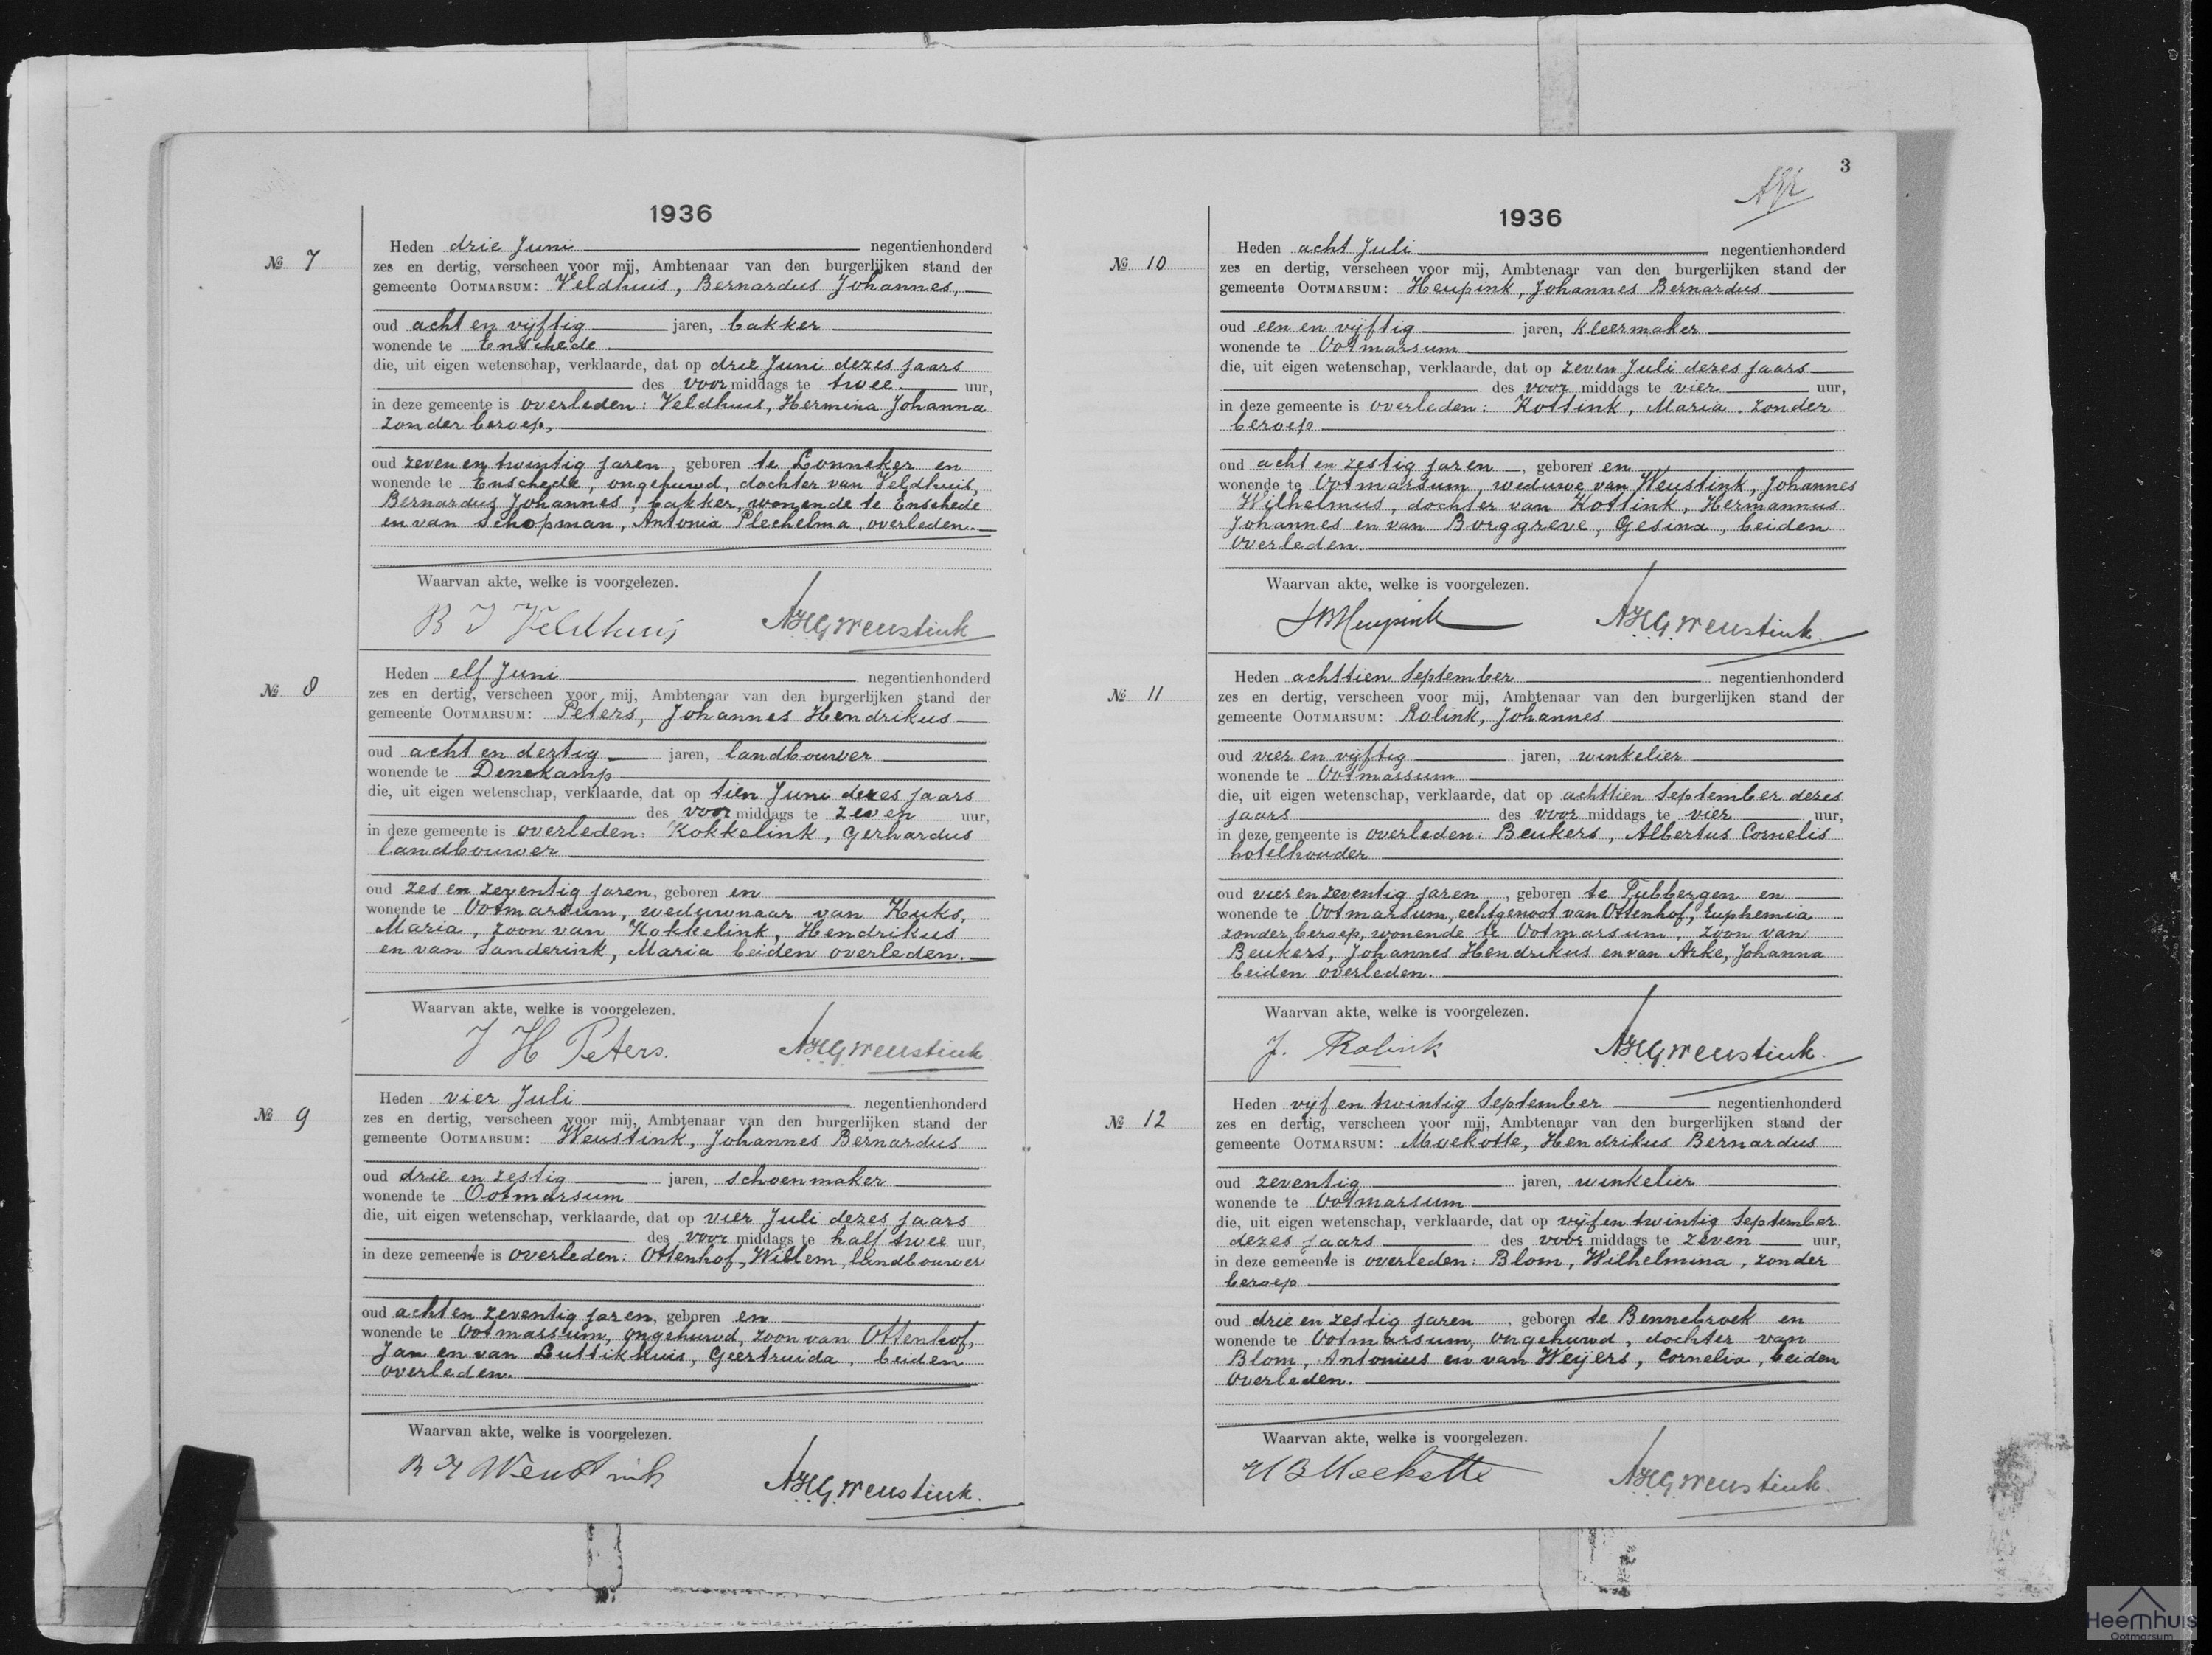 1936
№ 7
Heden drie Juni negentienhonderd
zes en dertig, verscheen voor mij, Ambtenaar van den burgerlijken stand der
gemeente OOTMARSUM: Veldhuis, Bernardus Johannes,
oud acht en vijftig jaren, bakker
wonende te Enschede
die, uit eigen wetenschap, verklaarde, dat op drie Juni dezes jaars
des voormiddags te twee uur,
in deze gemeente is overleden: Veldhuis, Hermina Johanna
zonder beroep,
oud zeven en twintig jaren, geboren te Lonneker en
wonende te Enschede, ongehuwd, dochter van Veldhuis,
Bernardus Johannes, bakker, wonende te Enschede
en van Schopman, Antonia Plechelma, overleden.
Waarvan akte, welke is voorgelezen.
B J Veldhuis AHGWeustink
№ 8
Heden elf Juni negentienhonderd
zes en dertig, verscheen voor mij, Ambtenaar van den burgerlijken stand der
gemeente OOTMARSUM: Peters, Johannes Hendrikus
oud acht en dertig jaren, landbouwer
wonende te Denekamp
die, uit eigen wetenschap, verklaarde, dat op tien Juni dezes jaars
des voormiddags te zeven uur,
in deze gemeente is overleden: Kokkelink, Gerhardus
landbouwer
oud zes en zeventig jaren, geboren en
wonende te Ootmarsum, weduwnaar van Kuks,
Maria, zoon van Kokkelink, Hendrikus
en van Sanderink, Maria beiden overleden.
Waarvan akte, welke is voorgelezen.
J H Peters. AHGWeustink
№ 9
Heden vier Juli negentienhonderd
zes en dertig, verscheen voor mij, Ambtenaar van den burgerlijken stand der
gemeente OOTMARSUM: Weustink, Johannes Bernardus
oud drie en zestig jaren, schoenmaker
wonende te Ootmarsum
die, uit eigen wetenschap, verklaarde, dat op vier Juli dezes jaars
des voormiddags te half twee uur,
in deze gemeente is overleden: Ottenhof, Willem, landbouwer
oud acht en zeventig jaren, geboren en
wonende te Ootmarsum, ongehuwd, zoon van Ottenhof,
Jan en van Luttikhuis, Geertruida, beiden
overleden.
Waarvan akte, welke is voorgelezen.
Weustink AHGWeustink.
3
1936
№ 10
Heden acht Juli negentienhonderd
zes en dertig, verscheen voor mij, Ambtenaar van den burgerlijken stand der
gemeente OOTMARSUM: Heupink, Johannes Bernardus
oud een en vijftig jaren, kleermaker
wonende te Ootmarsum
die, uit eigen wetenschap, verklaarde, dat op zeven Juli dezes jaars
des voormiddags te vier uur,
in deze gemeente is overleden: Kottink, Maria. zonder
beroep
oud acht en zestig jaren, geboren en
wonende te Ootmarsum, weduwe van Weustink, Johannes
Wilhelmus, dochter van Kottink, Hermannus
Johannes en van Borggreve, Gesina, beiden
overleden.
Waarvan akte, welke is voorgelezen.
JBHeupink AHGWeustink.
№ 11
Heden achttien September negentienhonderd
zes en dertig, verscheen voor mij, Ambtenaar van den burgerlijken stand der
gemeente OOTMARSUM: Rolink, Johannes
oud vier en vijftig jaren, winkelier
wonende te Ootmarsum
die, uit eigen wetenschap, verklaarde, dat op achttien September dezes
jaars des voormiddags te vier uur,
in deze gemeente is overleden: Beukers, Albertus Cornelis
hotelhouder
oud vier en zeventig jaren, geboren te Tubbergen en
wonende te Ootmarsum, echtgenoot van Ottenhof, Euphemia
zonder beroep, wonende te Ootmarsum, zoon van
Beukers, Johannes Hendrikus en van Arke, Johanna
beiden overleden.
Waarvan akte, welke is voorgelezen.
J. Rolink AHGWeustink.
№ 12
Heden vijf en twintig September negentienhonderd
zes en dertig, verscheen voor mij, Ambtenaar van den burgerlijken stand der
gemeente OOTMARSUM: Moekotte, Hendrikus Bernardus
oud zeventig jaren, winkelier
wonende te Ootmarsum
die, uit eigen wetenschap, verklaarde, dat op vijf en twintig September
dezes jaars des voormiddags te zeven uur,
in deze gemeente is overleden: Blom, Wilhelmina, zonder
beroep
oud drie en zestig jaren, geboren te Bennebroek en
wonende te Ootmarsum, ongehuwd, dochter van
Blom, Antonius en van Weijers, Cornelia, beiden
overleden.
Waarvan akte, welke is voorgelezen.
HBMoekotte AHGWeustink.
Heemhuis
Ootmarsum